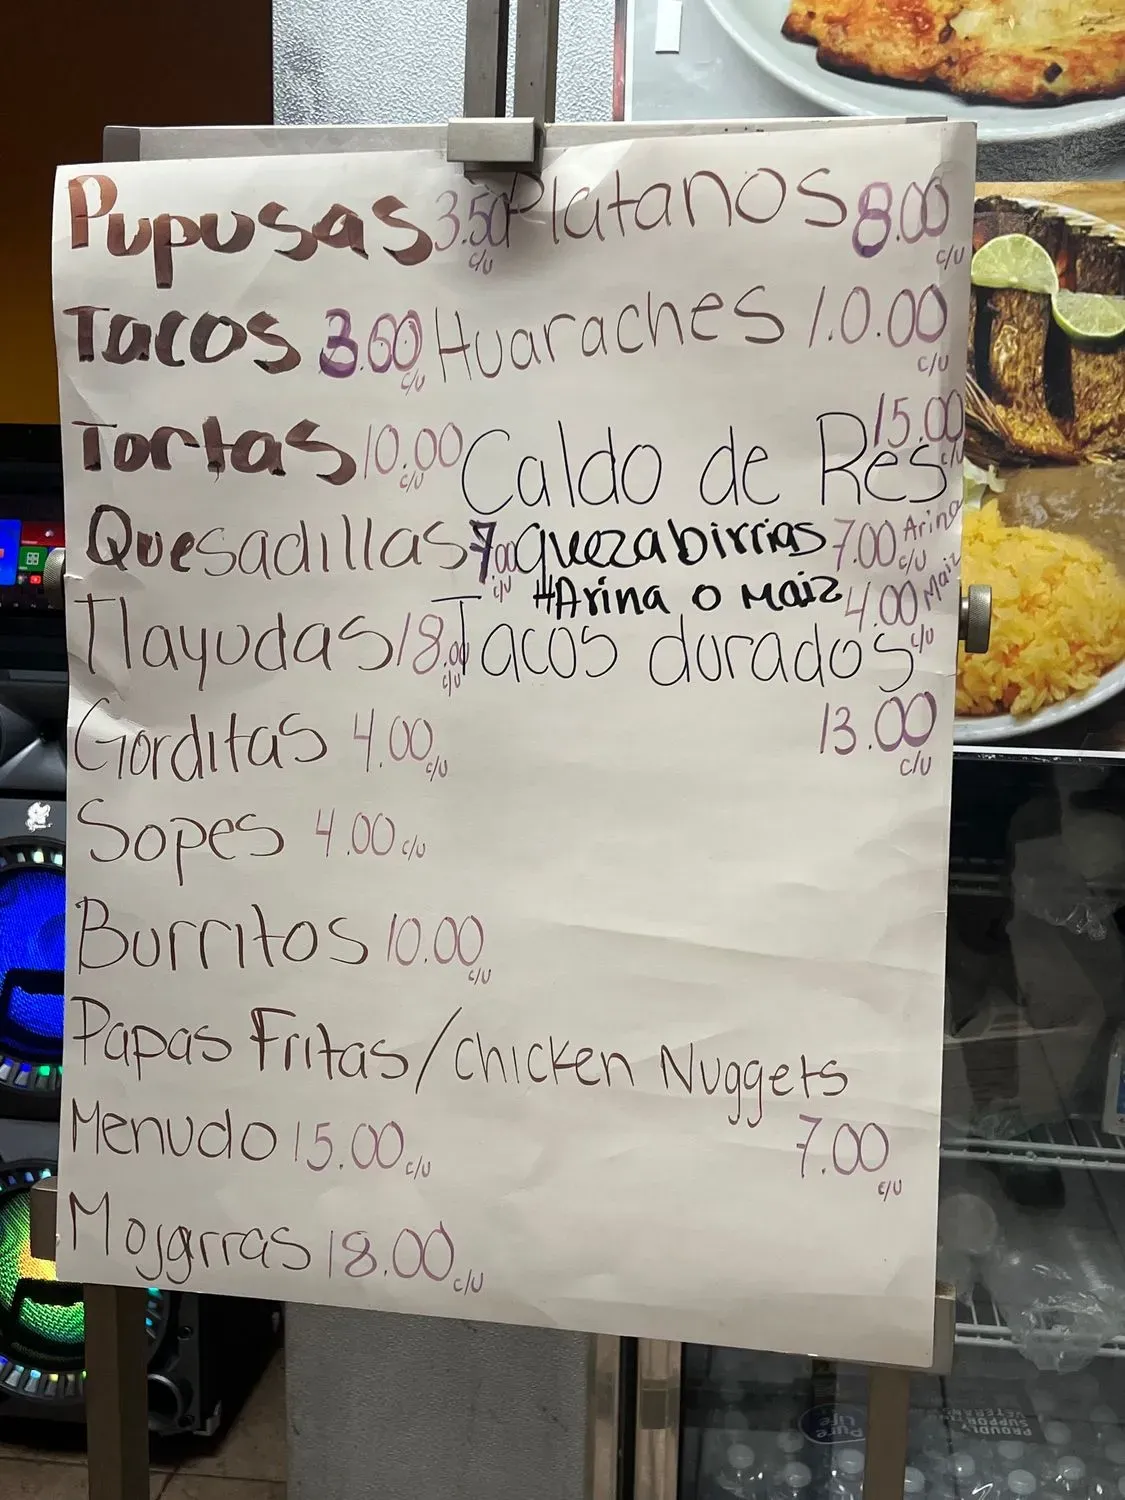 Pupusas 3.50 c/u Platanos 8.00 c/u
Tacos 3.00 c/u Huaraches 1.0.00 c/u
Tortas 10.00 c/u Caldo de Res 15.00 c/u
Quesadillas 7.00 c/u quezabirrias 7.00 Arina c/u
#Arina o Maiz 4.00 Maiz c/u
Tlayudas 18.00 c/u Tacos dorados
13.00 c/u
Gorditas 4.00 c/u
Sopes 4.00 c/u
Burritos 10.00 c/u
Papas Fritas/chicken Nuggets
7.00 c/u
Menudo 15.00 c/u
Mojarras 18.00 c/u
Pure Life
PROUDLY
SUPPORTING
VETERANS